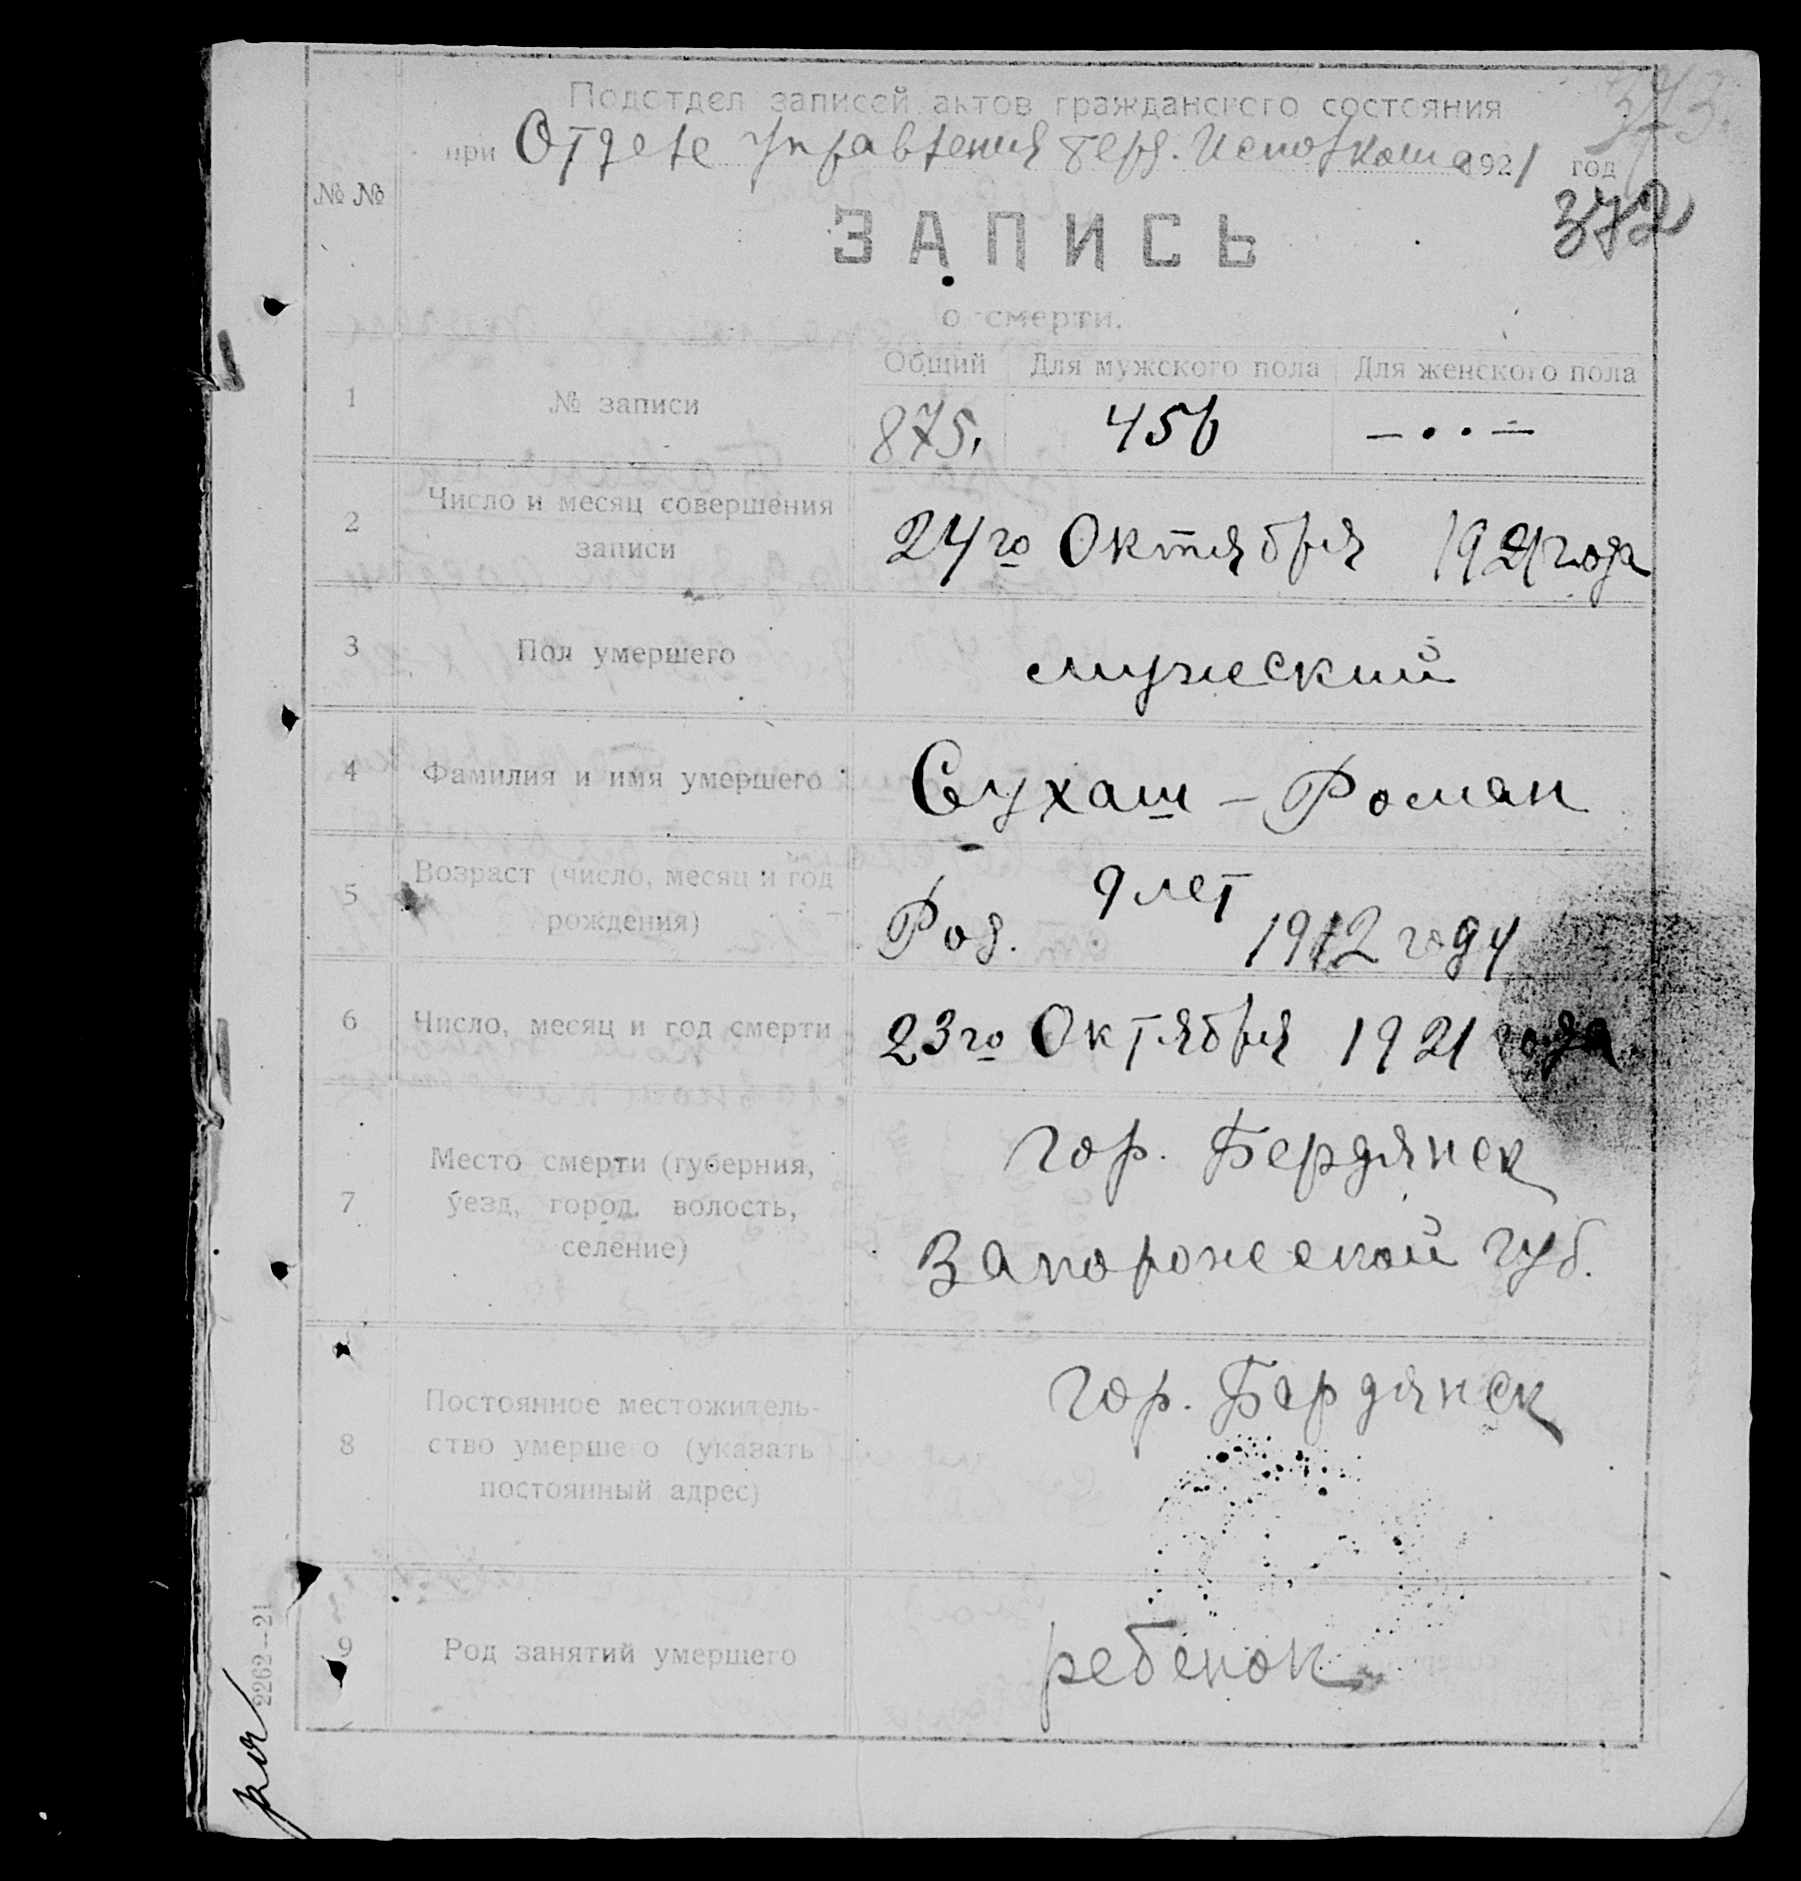 373.
Подотдел записей актов гражданского состояния
при Отделе Управления Берд. Исполкома 1921 год
372
№ №
ЗАПИСЬ
о смерти.
Общий Для мужского пола Для женского пола
1 № записи 875. 456 — . . —
2 Число и месяц совершения
записи 24го Октября 1921 года
3 Пол умершего мужеский
4 Фамилия и имя умершего Сухаш – Роман
5 Возраст (число, месяц и год
рождения) 9 лет
Род. 1912 году
6 Число, месяц и год смерти 23го Октября 1921 года
7 Место смерти (губерния,
уезд, город, волость,
селение) гор. Бердянск
Запорожеской губ.
8 Постоянное местожитель-
ство умершего (указать
постоянный адрес) гор. Бердянск
9 Род занятий умершего ребенок
2262—21